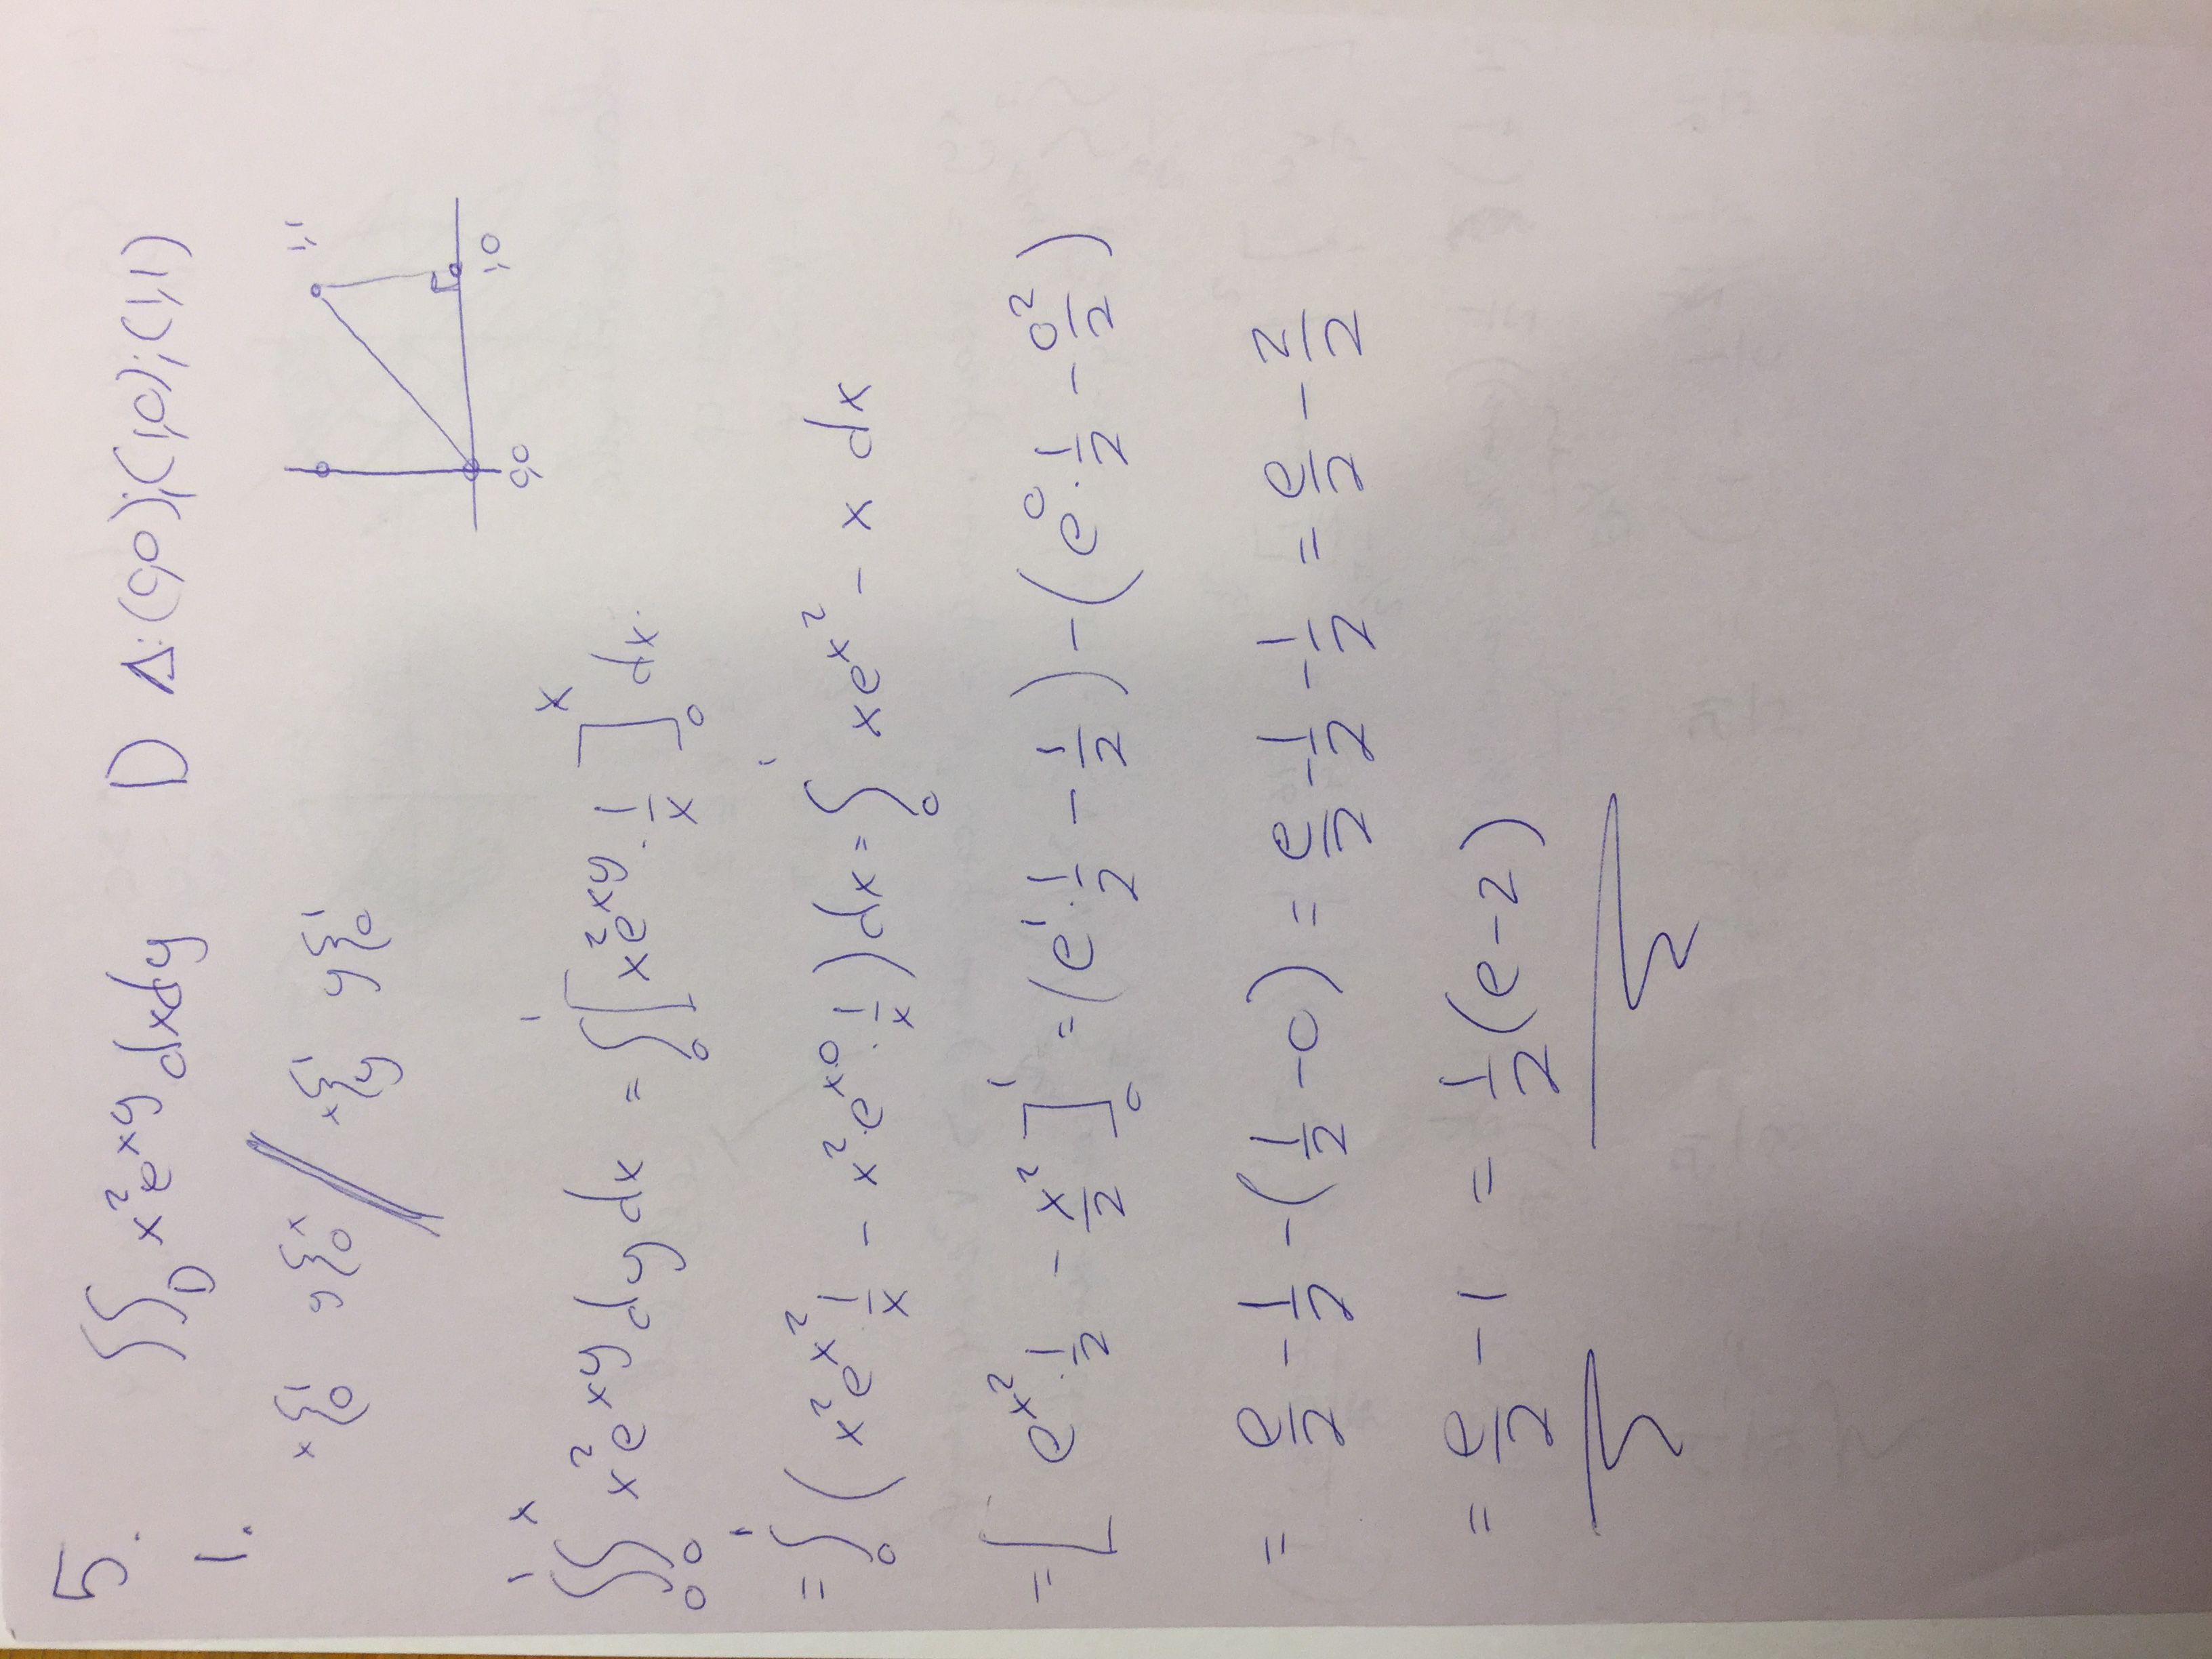 5.
∫∫_D x²e^{xy} dxdy   D Δ: (0,0); (1,0); (1,1)
1.
x{¹₀   y{ˣ₀ // x{¹_y   y{¹₀
1,1
1,0
0,0
∫₀¹∫₀ˣ x²e^{xy} dy dx = ∫₀¹ [x²e^{xy} · 1/x]₀ˣ dx
= ∫₀¹ (x²e^{x²} · 1/x − x²·e^{x·0} · 1/x) dx = ∫₀¹ xe^{x²} − x dx
= [e^{x²} · 1/2 − x²/2]₀¹ = (e¹ · 1/2 − 1/2) − (e⁰ · 1/2 − 0²/2)
= e/2 − 1/2 − (1/2 − 0) = e/2 − 1/2 − 1/2 = e/2 − 2/2
= e/2 − 1 = 1/2 (e − 2)